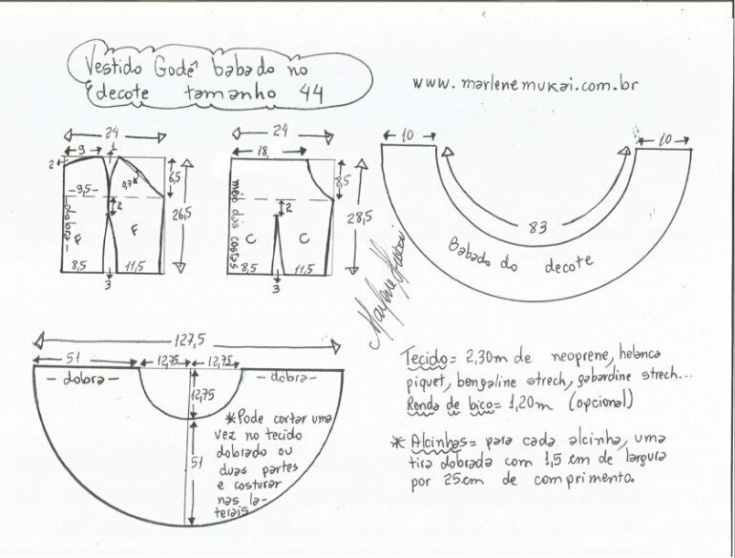 Vestido Godê babado no
decote tamanho 44
www.marlenemukai.com.br
24
9
1
2
9,7
6,5
-9,5-
2
dobra-
F
F
26,5
8,5
11,5
3
24
18
8,5
meio das costas
2
C
C
28,5
8,5
11,5
3
10
10
83
Babado do decote
Marlene Mukai
127,5
51
12,75
12,75
-dobra-
-dobra-
12,75
51
*Pode cortar uma
vez no tecido
dobrado ou
duas partes
e costurar
nas la-
terais
Tecido= 2,30m de neoprene, helanca
piquet, bengaline strech, gabardine strech...
Renda de bico= 1,20m (opcional)
* Alcinhas= para cada alcinha, uma
tira dobrada com 1,5 cm de largura
por 25cm de comprimento.